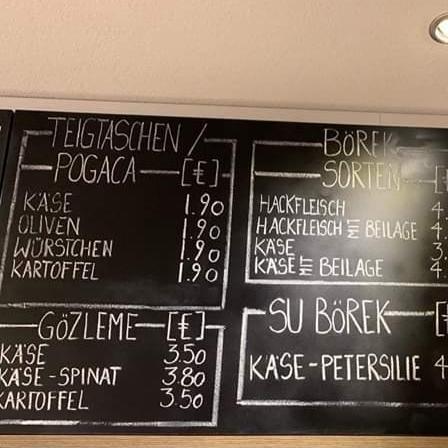 TEIGTASCHEN /
POGACA [€]
KÄSE 1.90
OLIVEN 1.90
WÜRSTCHEN 1.90
KARTOFFEL 1.90
GÖZLEME [€]
KÄSE 3.50
KÄSE-SPINAT 3.80
KARTOFFEL 3.50
BÖREK
SORTEN [
HACKFLEISCH 4
HACKFLEISCH MIT BEILAGE 4.
KÄSE 3.
KÄSE MIT BEILAGE 4
SU BÖREK [
KÄSE-PETERSILIE 4